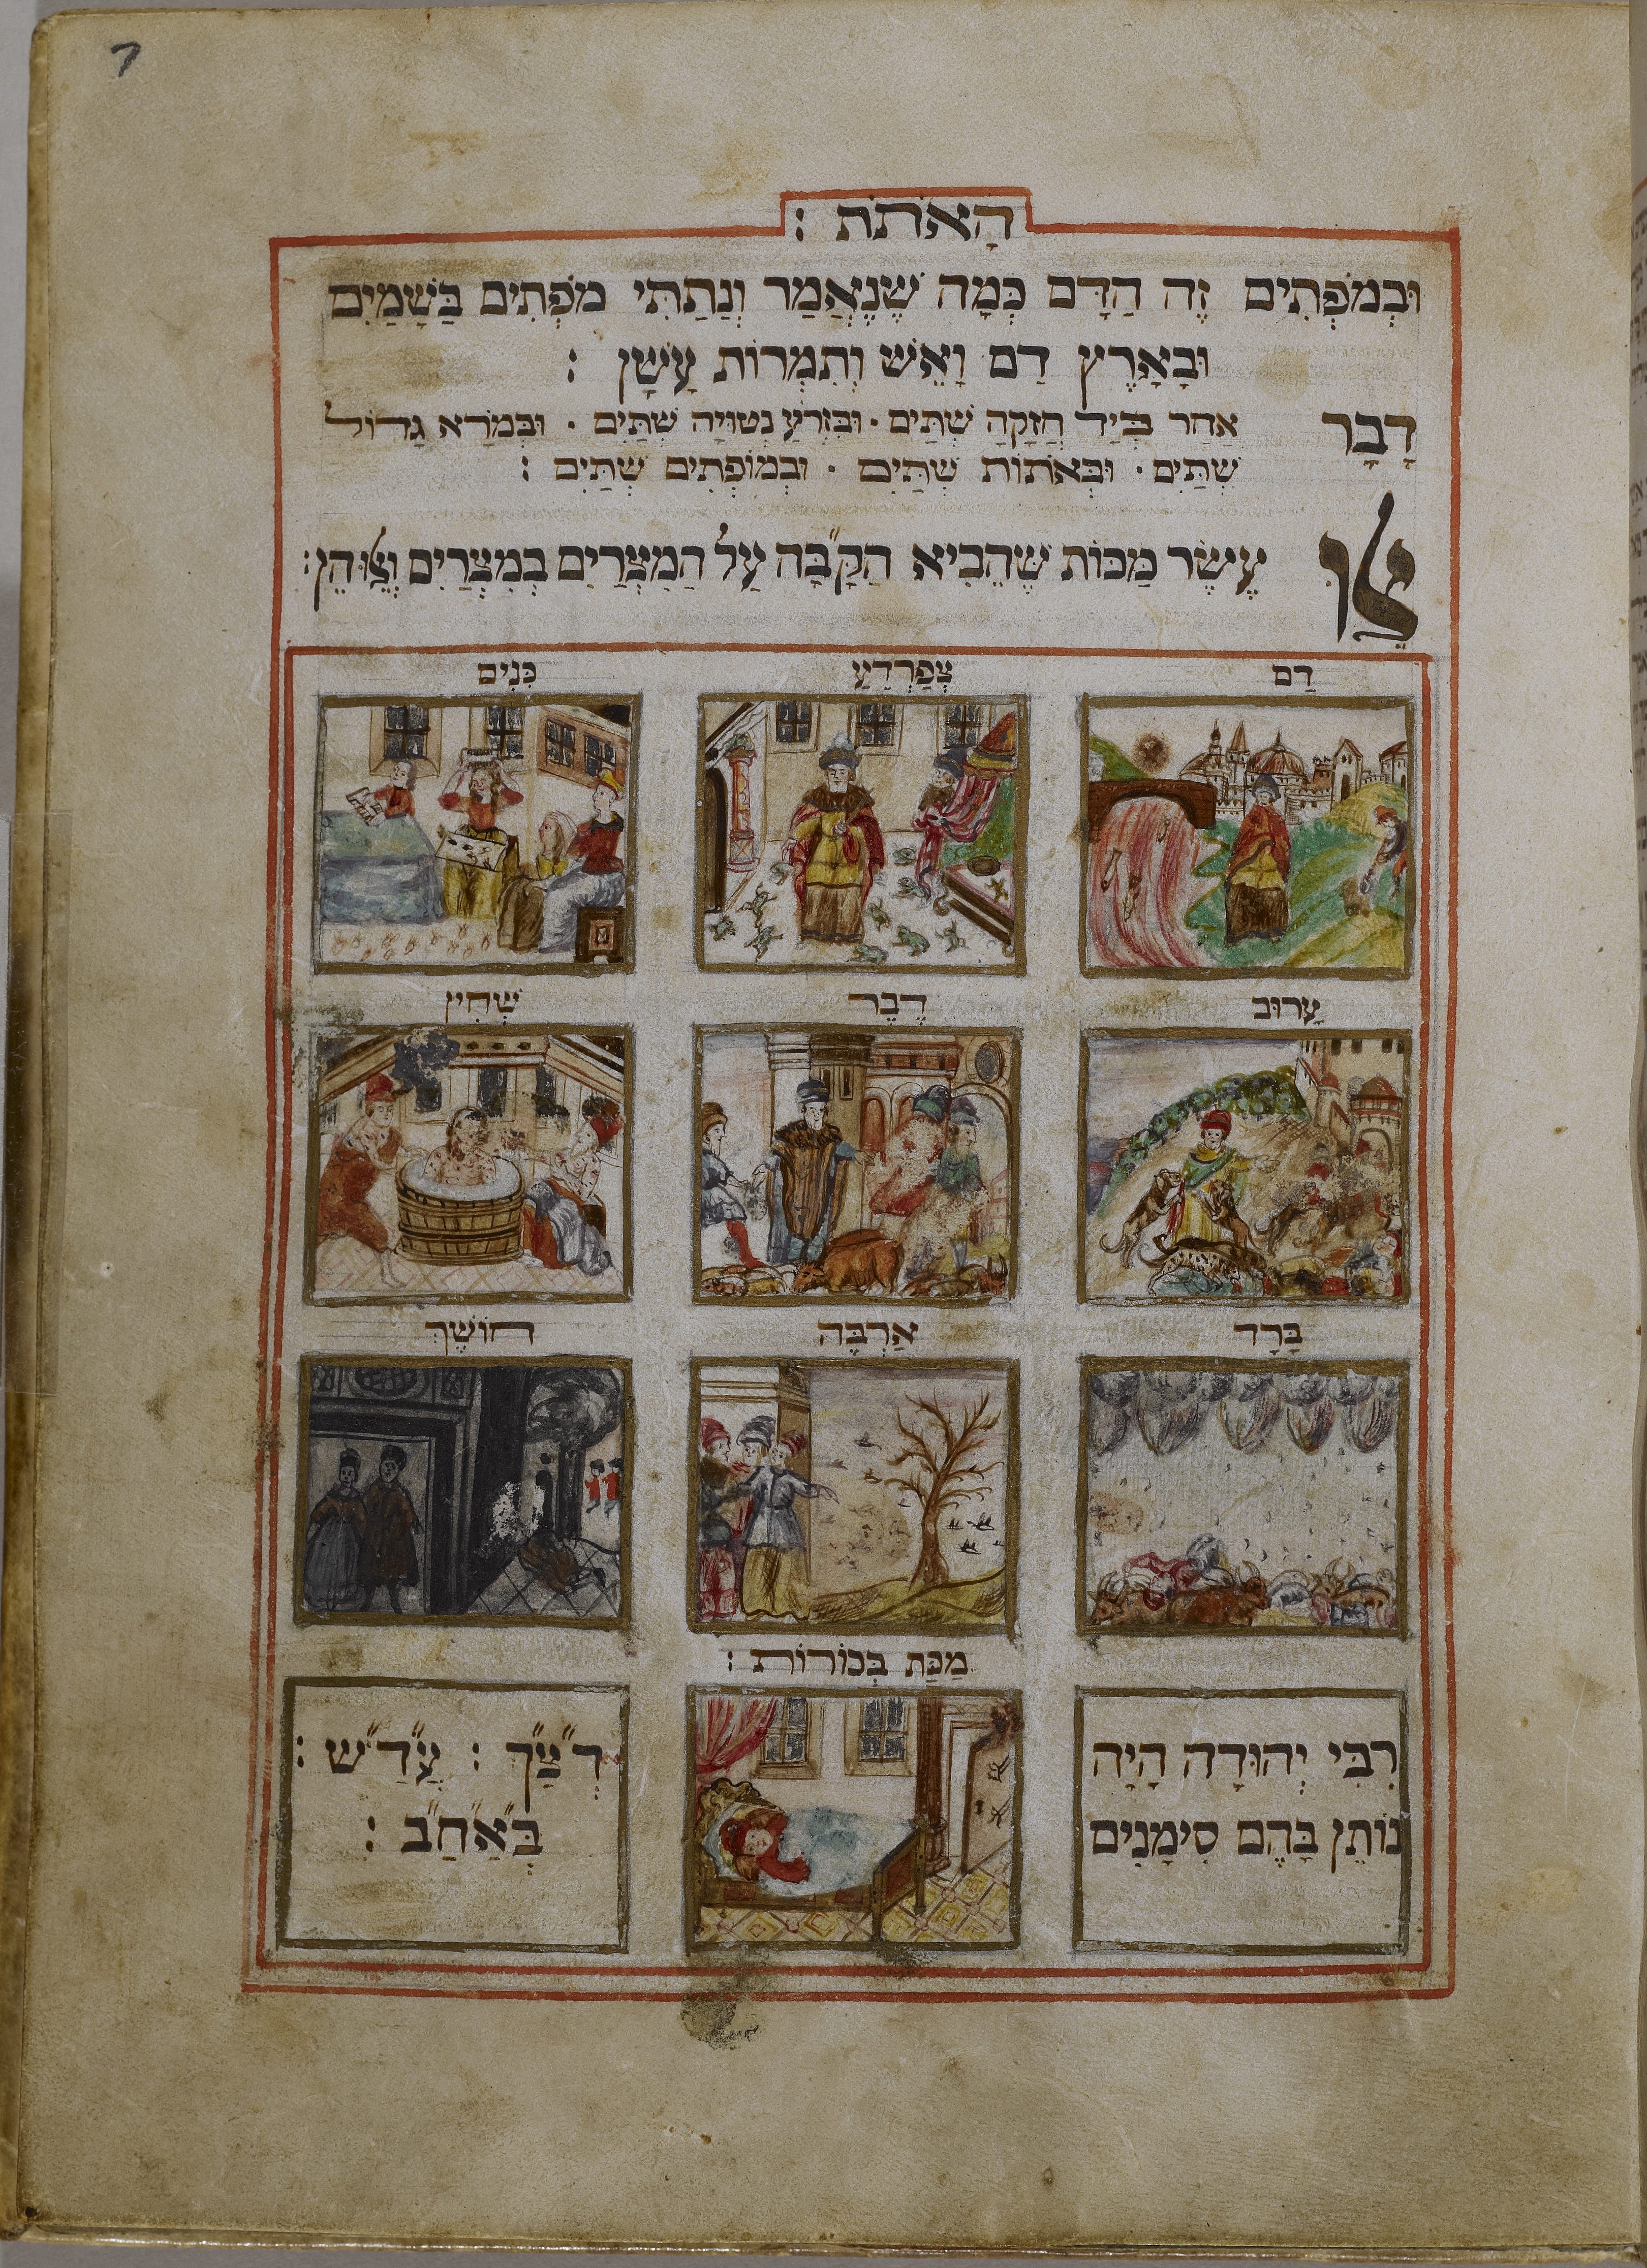 7
הָאֹתֹת :
וּבְמֹפְתִים זֶה הַדָּם כְּמָה שֶׁנֶּאֱמַר וְנָתַתִּי מֹפְתִים בַּשָּׁמַיִם
וּבָאָרֶץ דַם וָאֵשׁ וְתִמְרוֹת עָשָׁן :
דָבָר אַחֵר בְּיַד חֲזָקָה שְׁתַּיִם · וּבִזְרֹעַ נְטוּיָה שְׁתַּיִם · וּבְמֹרָא גָּדוֹל
שְׁתַּיִם · וּבְאֹתוֹת שְׁתַּיִם · וּבְמוֹפְתִים שְׁתַּיִם :
אֵלוּ עֶשֶׂר מַכּוֹת שֶׁהֵבִיא הַקָּבָּ״ה עַל הַמִצְרַיִם בְּמִצְרַיִם וְאֵלוּ הֵן :
דַם צְפַרְדֵעַ כִּנִים
עָרוֹב דֶבֶר שְׁחִין
בָּרָד אַרְבֶּה חוֹשֶׁךְ
מַכַּת בְּכוֹרוֹת :
רִבִּי יְהוּדָה הָיָה
נוֹתֵן בָּהֶם סִימָנִים
דְ״צַ״ךְ : עֲ״דַ״שׁ :
בְּ״אַ״חַ״ב :